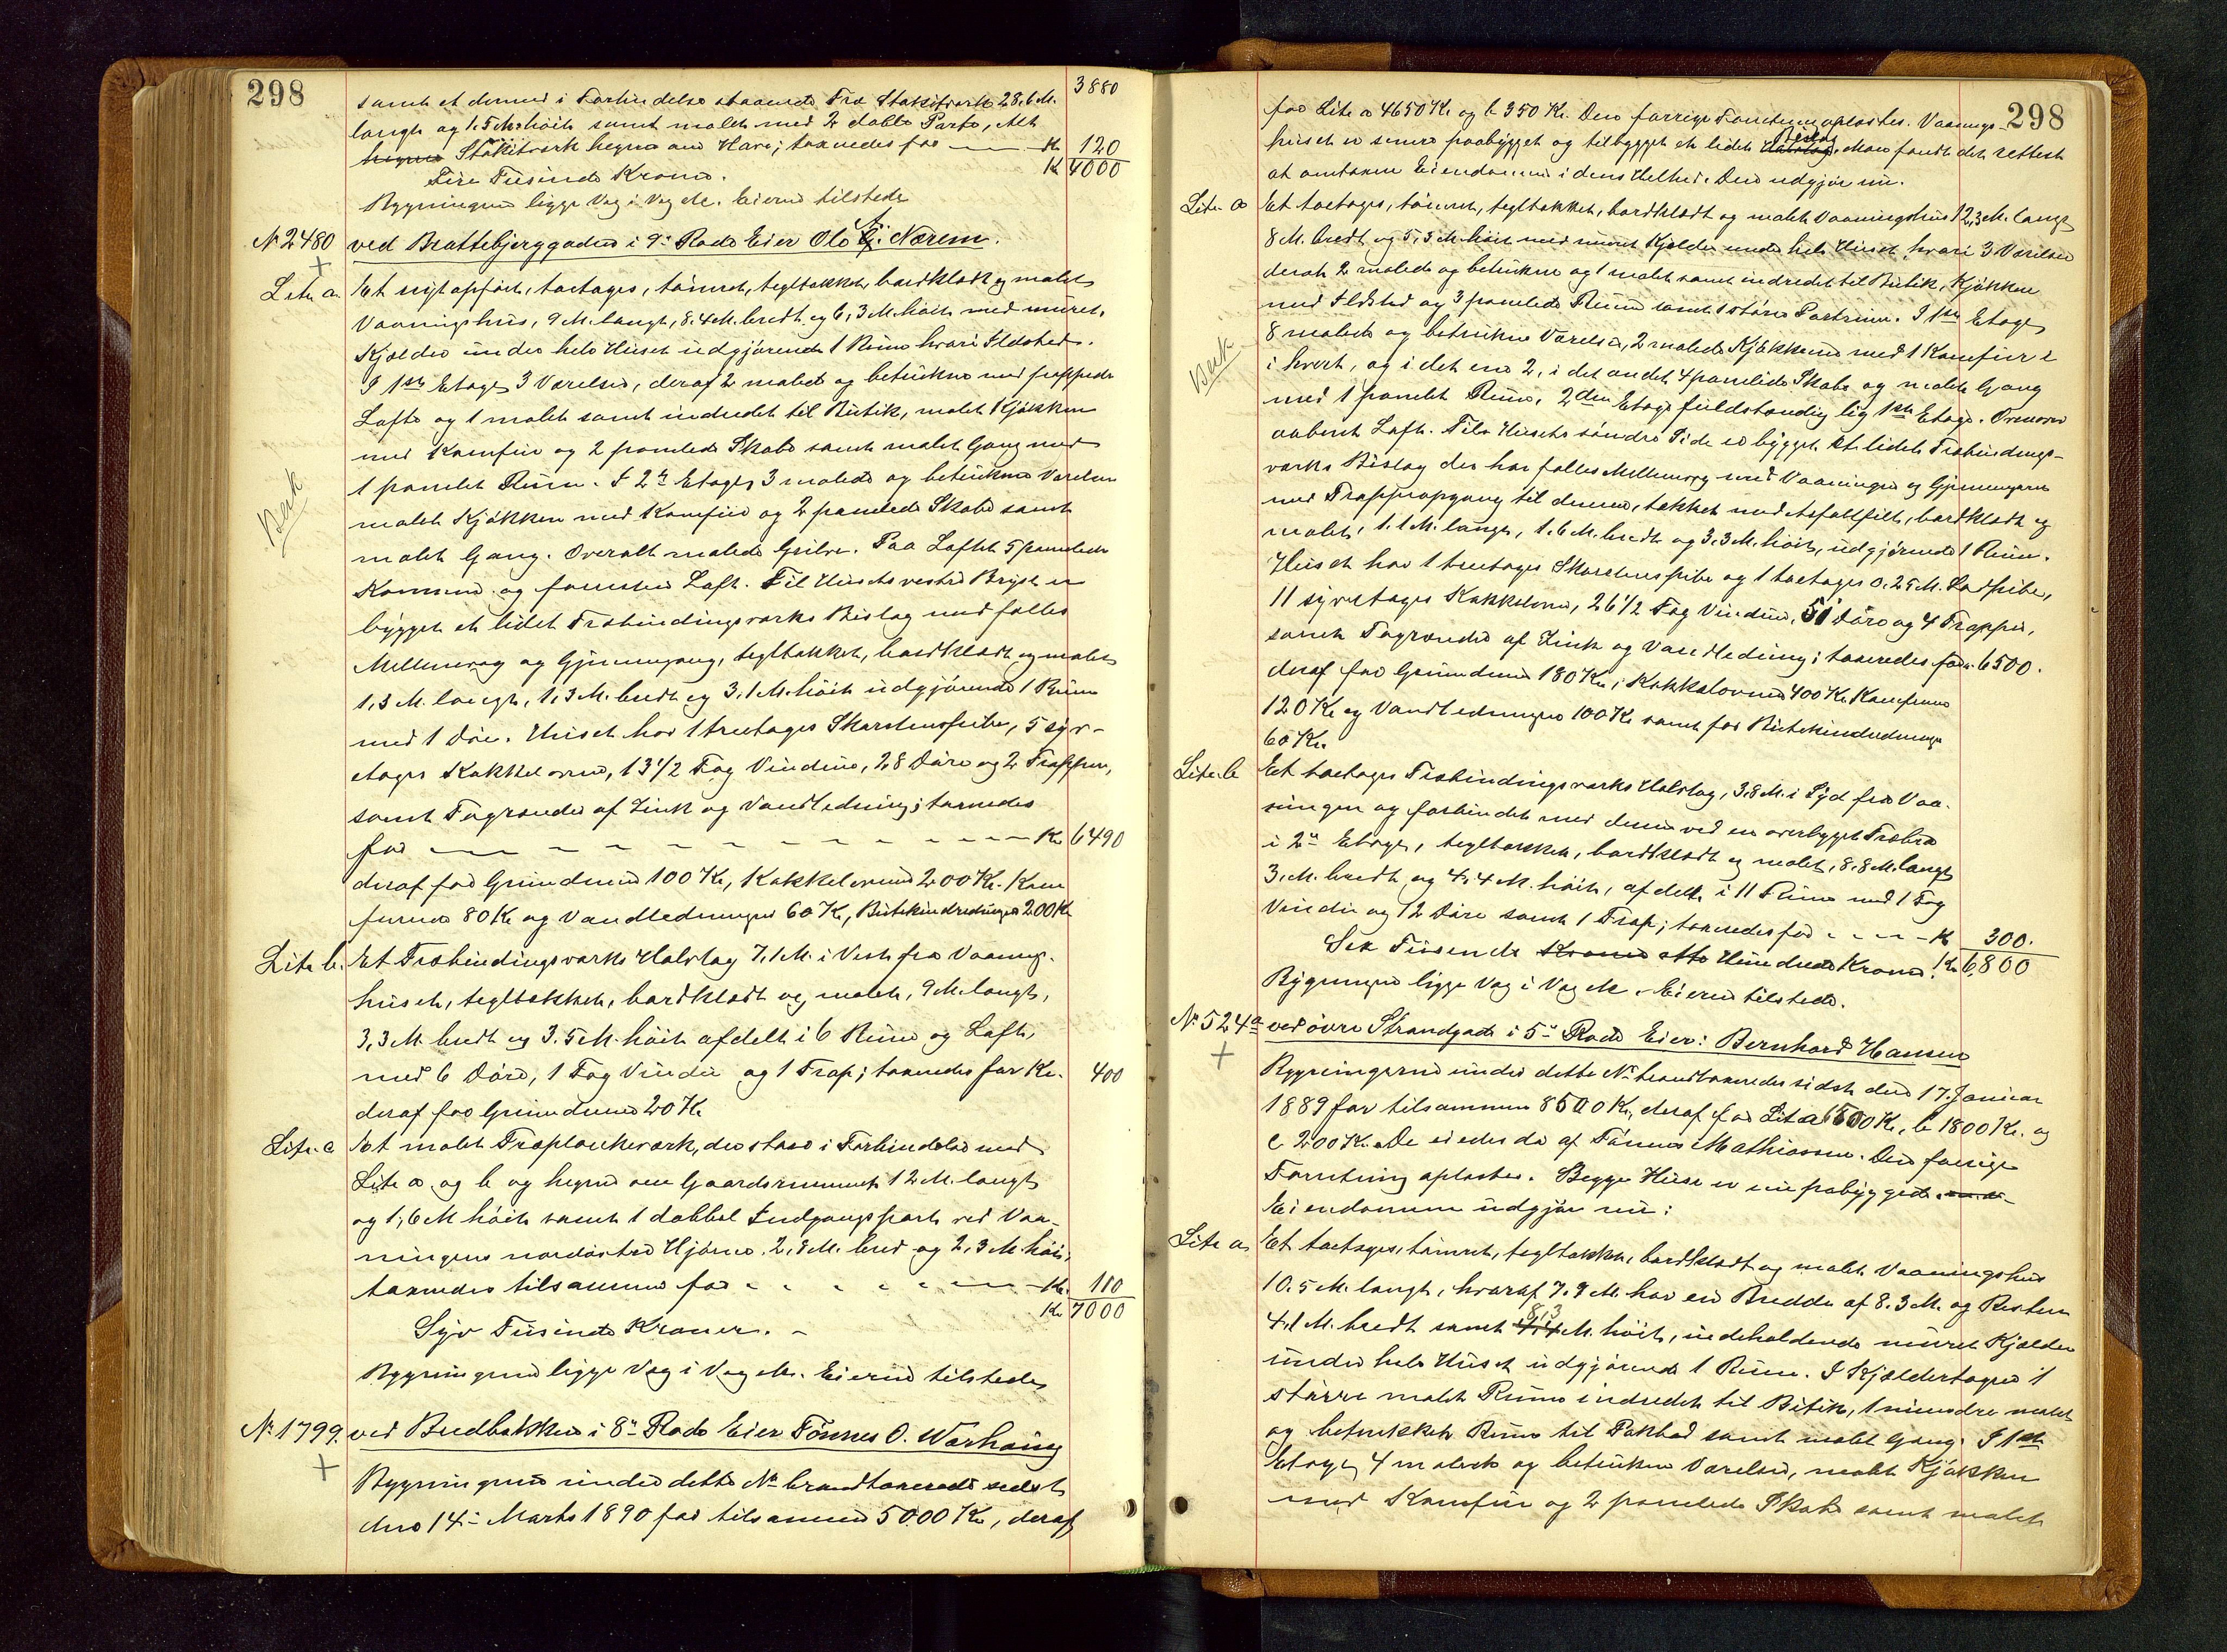 298
3880
samt et dermed i Forbindelse staaende Træ Stakitværk 28,6 M.
langt og 1.5 M. höit samt malet med 2 doble Porte, Alt
Stakitværk hegner om Have; taxeredes for — K 120
Fire Tusinde Kroner. K 4000
Bygningen ligge Væg i Væg M. Eieren tilstede
No 2480 ved Brattebjerggaden i 9de Rode Eier Ole A. Nærem.
Litr. a. Et nyt opfört, toetages, tömret, tegltækket, bordklædt og malet
Vaaningshus, 9 M. langt, 8.4 M. bredt og 6,3 M. höit med muret
Kjælder under hele Huset udgjörende 1 Rum hvori Ildsted.
I 1ste Etage 3 Værelser, deraf 2 malede og betrukne med pappede
Lofte og 1 malet samt indredet til Butik, malet Kjökken
med Komfur og 2 panelede Skabe samt malet Gang med
1 panelet Rum. I 2den Etage 3 malede og betrukne Værelser
malet Kjökken med Komfur og 2 panelede Skabe samt
malet Gang. Overalt malede Gulve. Paa Loftet 5 panelede
Kammere og forresten Loft. Til Husets vestre Bryst er
bygget et lidet Træbindingsværks Bislag med fælles
Mellemvæg og Gjennemgang, tegltækket, bordklædt og malet
1,3 M. langt, 1,3 M. bredt og 3,1 M. höit udgjörende 1 Rum
med 1 Dör. Huset har 1 treetages Skorstenspibe, 5 syv-
etages Kakkelovne, 13 1/2 Fag Vinduer, 28 Döre og 2 Trapper,
samt Tagrender af Zink og Vandledning; taxeredes
for — K 6490
deraf for Grundmur 100 Kr, Kakkelovne 200 Kr. Kom
furene 80 Kr og Vandledningen 60 K, Butikindredningen 200 Kr
Litr b. Et Træbindingsværks Halvtag 7,1 M. i Vest fra Vaanings-
huset, tegltækket, bordklædt og malet, 9 M. langt,
3,3 M. bredt og 3.5 M. höit afdelt i 6 Rum og Loft,
med 6 Döre, 1 Fag Vindu og 1 Trap; taxeredes for Kr. 400
deraf for Grundmur 20 K.
Litr. c Et malet Træplankeværk, der staar i Forbindelse med
Litr a og b og hegner om Gaardsrummet 12 M. langt
og 1,6 M höit samt 1 dobbel Indgangsport ved Vaa-
ningens nordöstre Hjörne. 2,8 M. bred og 2,3 M. höi,
taxeredes tilsammen for — Kr. 110
Syv Tusinde Kroner. — Kr 7000
Bygningerne ligge Væg i Væg M. Eieren tilstede
No 1799. ved Bredbakken i 8de Rode Eier Tönnes O. Warhaug
Bygningerne under dette No brandtaxeredes sidst
den 14de Marts 1890 for tilsammen 5000 Kr, deraf
Bæk
298
for Litr a 4650 Kr og b 350 Kr. Den forrige Forretning oplæstes. Vaanings-
huset er senere paabygget og tilbygget et lidet Bislag. Man fandt det rettest
at omtaxere Eiendommen i dens Helhed. Den udgjör nu.
Litr. a Et toetages, tömret, tegltækket, bordklædt og malet Vaaningshus 12,3 M. langt
8 M. bredt og 5,3 M. höit med muret Kjelder under hele Huset hvori 3 Værelser
deraf 2 malede og betrukne og 1 malet samt indredet til Butik, Kjökken
med Ildsted og 3 panelede Rum samt 1 större Portrum. I 1ste Etage
8 malede og betrukne Værelser, 2 malede Kjökkener med 1 Komfur
i hvert, og i det ene 2, i det andet 4 panelede Skabe og malet Gang
med 1 panelet Rum. 2den Etage fuldstændig lig 1ste Etage. Ovenover
aabent Loft. Til Husets söndre Side er bygget et lidet Træbindings-
værks Bislag der har fælles Mellemvæg med Vaaningen og Gjennemgang
med Trappeopgang til denne, tækket med Asfaltfilt, bordklædt og
malet, 1.1 M. langt, 1.6 M. bredt og 3,3 M. höit, udgjörende 1 Rum.
Huset har 1 treetages Skorstenspibe og 1 toetages 0.25 M. Lædpibe,
11 syvetages Kakkelovne, 26 1/2 Fag Vinduer, 51 Döre og 4 Trapper,
samt Tagrender af Zink og Vandledning; taxeredes for Kr 6500.
deraf for Grundmur 180 Kr, Kakkelovne 400 Kr. Komfurene
120 Kr og Vandledningen 100 Kr samt for Butikindredningen
60 Kr.
Litr. b Et toetages Træbindingsværks Halvtag, 3.8 M. i Syd fra Vaa-
ningen og forbindet med denne ved en overbygget Træbro
i 2den Etage, tegltækket, bordklædt og malet, 8.8 M. langt
3. M. bredt og 4,4 M. höit, afdelt i 11 Rum med 1 Fag
Vindu og 12 Döre samt 1 Trap; taxeredes for - - - K 300.
Sex Tusende otte Hundrede Kroner. Kr 6,800
Bygningerne ligge Væg i Væg M. Eieren tilstede.
No 524a ved övre Strandgade i 5te Rode Eier: Bernhard Hansen
Bygningerne under dette No brandtaxeredes sidst den 17. Januar
1889 for tilsammen 8500 Kr, deraf for Litr a 6500 Kr, b 1800 Kr. og
c 200 Kr. De eiedes da af Tönnes Mathiassen. Den forrige
Forretning oplæstes. Begge Huse er nu paabyggede
Eiendommen udgjör nu:
Litr a Et toetages, tömret, tegltækket, bordklædt og malet Vaaningshus
10.5 M. langt, hvoraf 7.9 M. har en Bredde af 8.3 M. og Resten
4,1 M. bredt samt 8,3 M. höit, indeholdende muret Kjælder
under hele Huset udgjörende 1 Rum. I Kjælderetagen 1
större malet Rum indredet til Butik, 1 mindre malet
og betrukket Rum til Pakbod samt malet Gang. I 1ste
Etage 4 malede og betrukne Værelser, malet Kjökken
med Komfur og 2 panelede Skabe samt malet
Bæk